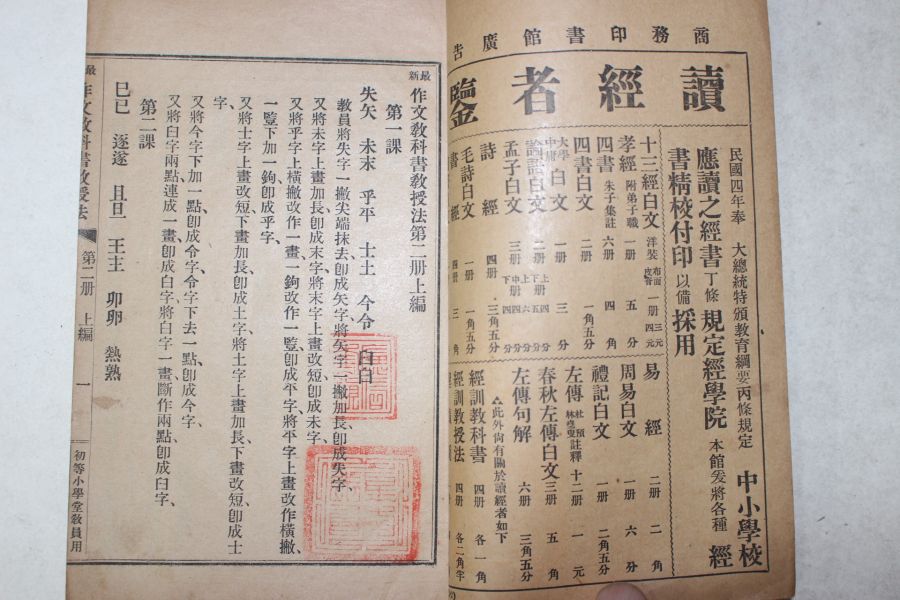 商務印書館廣告
讀經者鑒
民國四年奉 大總統特頒教育綱要丙條規定 中小學校
應讀之經書丁條規定經學院 本館爰將各種 經
書精校付印以備採用
十三經白文 洋裝 布面 皮脊 一册 三元 四元
孝經 附弟子職 一册 五分
四書 朱子集註 六册 四角
四書白文 一册 一角五分
大學中庸白文 一册 三分
論語白文 二册
孟子白文 三册
詩經 四册 三角五分
毛詩白文 一册 一角五分
書經 四册 三角
易經 二册 二角
周易白文 一册 六分
禮記白文 一册 二角五分
左傳 杜預林堯叟註釋 十二册 一元
春秋左傳白文 三册 五角
左傳句解 六册 三角五分
△此外尚有關於讀經者如下
經訓教科書 四册 各一角
經訓教授法 四册 各二角半
最新作文教科書教授法第二册上編
第一課
失矢 未末 乎平 士土 今令 臼白
教員將失字一撇尖端抹去卽成矢字、將矢字一撇加長、卽成失字、
又將未字上畫加長、卽成末字、將末字上畫改短、卽成未字、
又將乎字上橫撇改作一畫、一鉤改作一豎、卽成平字、將平字上畫改作橫撇、
一豎下加一鉤、卽成乎字、
又將士字上畫改短、下畫加長、卽成土字、將土字上畫加長、下畫改短、卽成士
字、
又將今字下加一點、卽成令字、令字下去一點、卽成今字、
又將臼字兩點連成一畫、卽成白字、將白字一畫斷作兩點、卽成臼字、
第二課
巳已 逐遂 且旦 王主 卯卵 熱熟
最新作文教科書教授法 第二册 上編 一 初等小學堂教員用